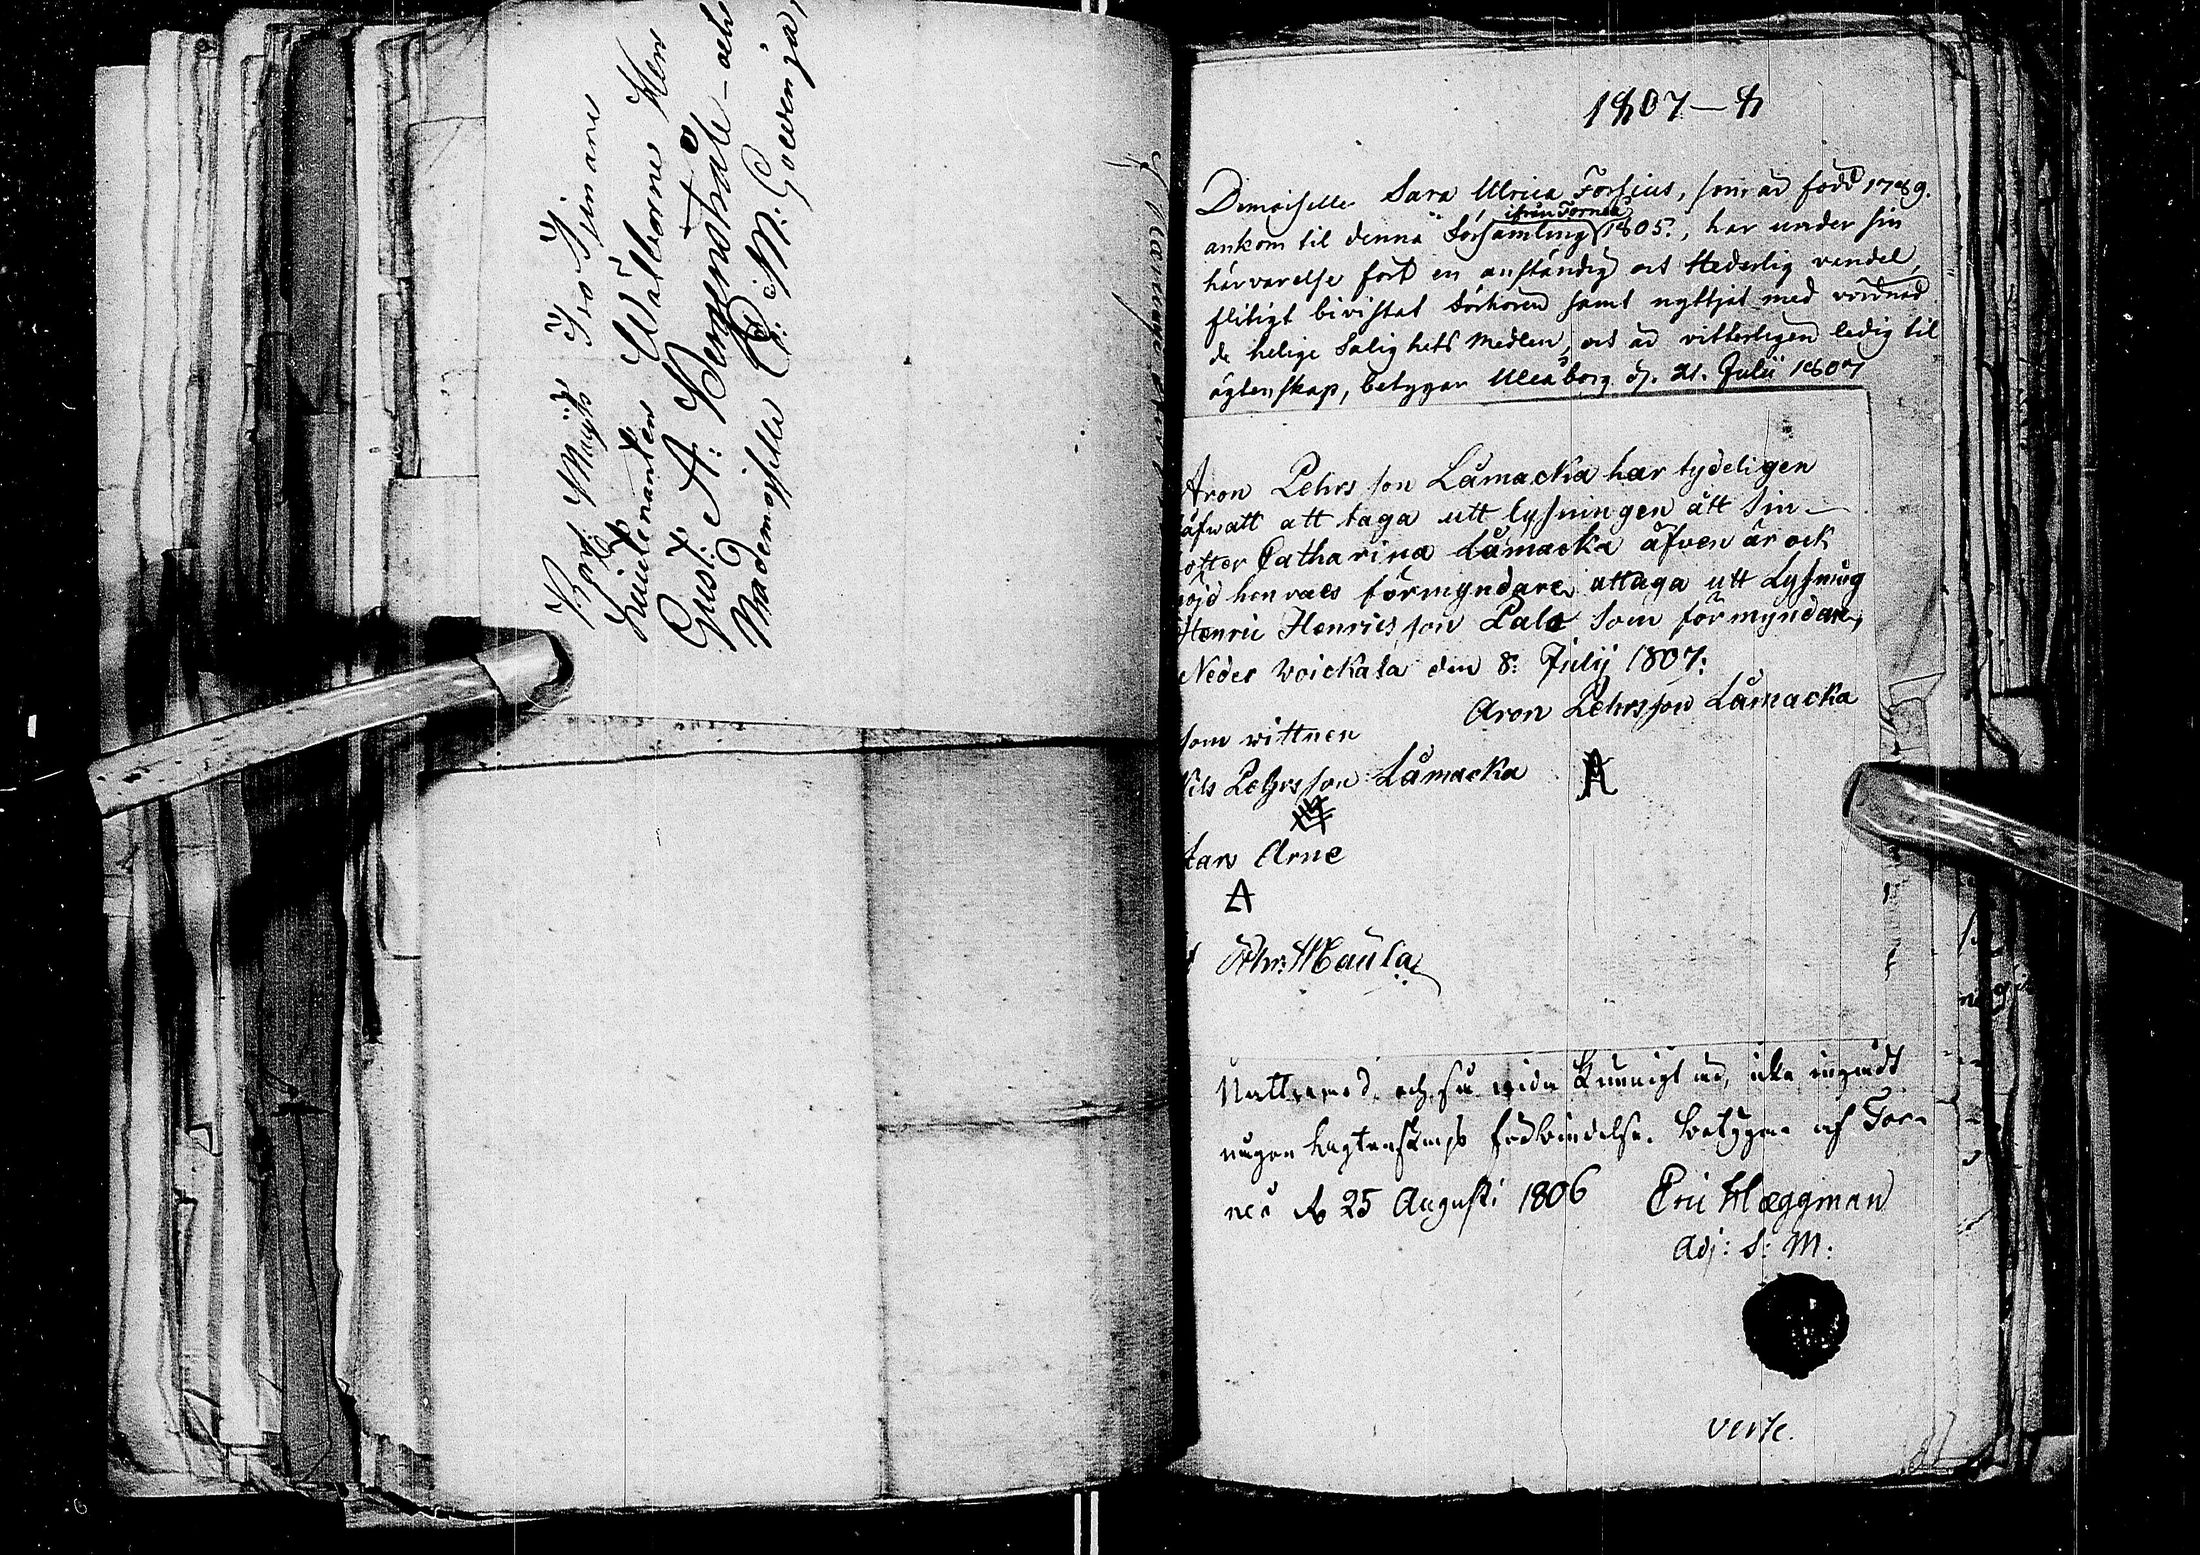 Kgl. Majts Tro Tjenare
Lieutenanten Wälborne Herr
Gust: A: Bergenstråle – och
Mademoiselle C: M: Govenja,
1807 – 8
Demoiselle Sara Ulrica Forsius, som är född 1789.
ankom til denna Församling ifrån Torneå 1805., har under sin
härvarelse fört en anständig och Hederlig vandel,
flitigt bivistat Förhören samt nyttjat med vördnad
de helige Salighets medlen, och är vitterligen ledig til
ägtenskap, betygar Uleåborg d. 21. Julii 1807
Aron Pehrs son Låmacka har tydeligen
låfwatt att taga utt lysningen ått sin
dotter Catharina Låmacka äfven är ock
nöjd hennaes förmyndare attaga utt Lysning
Henric Henrics son Palo som förmyndare,
Neder Woickala den 8: Julij 1807:
Aron Pehrsson Låmacka
som wittnen
Nils Pehrsson Låmacka A
Lars Arne
A
Joh: Maula
Nattvard. och så vida kunnigt är, icke ingådt
någon ägtenskaps förbindelse. betygar af Tor-
neå d. 25 Augusti 1806 Eric Hæggman
Adj: S: M:
verte.